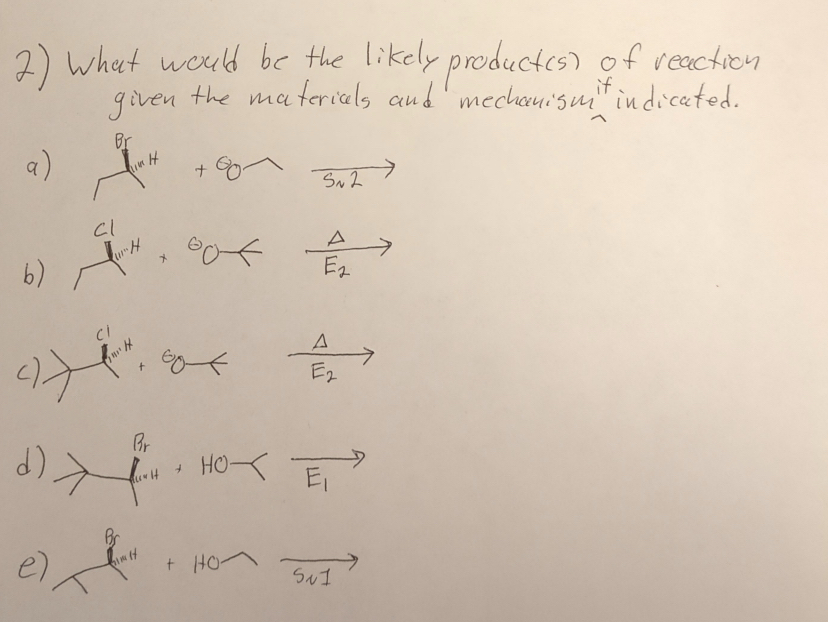 2) What would be the likely product(s) of reaction
given the materials and mechanism if indicated.
a) Br H + ⊖O SN2
b) Cl H + ⊖O Δ E2
c) Cl H + ⊖O Δ E2
d) Br H + HO E1
e) Br H + HO SN1